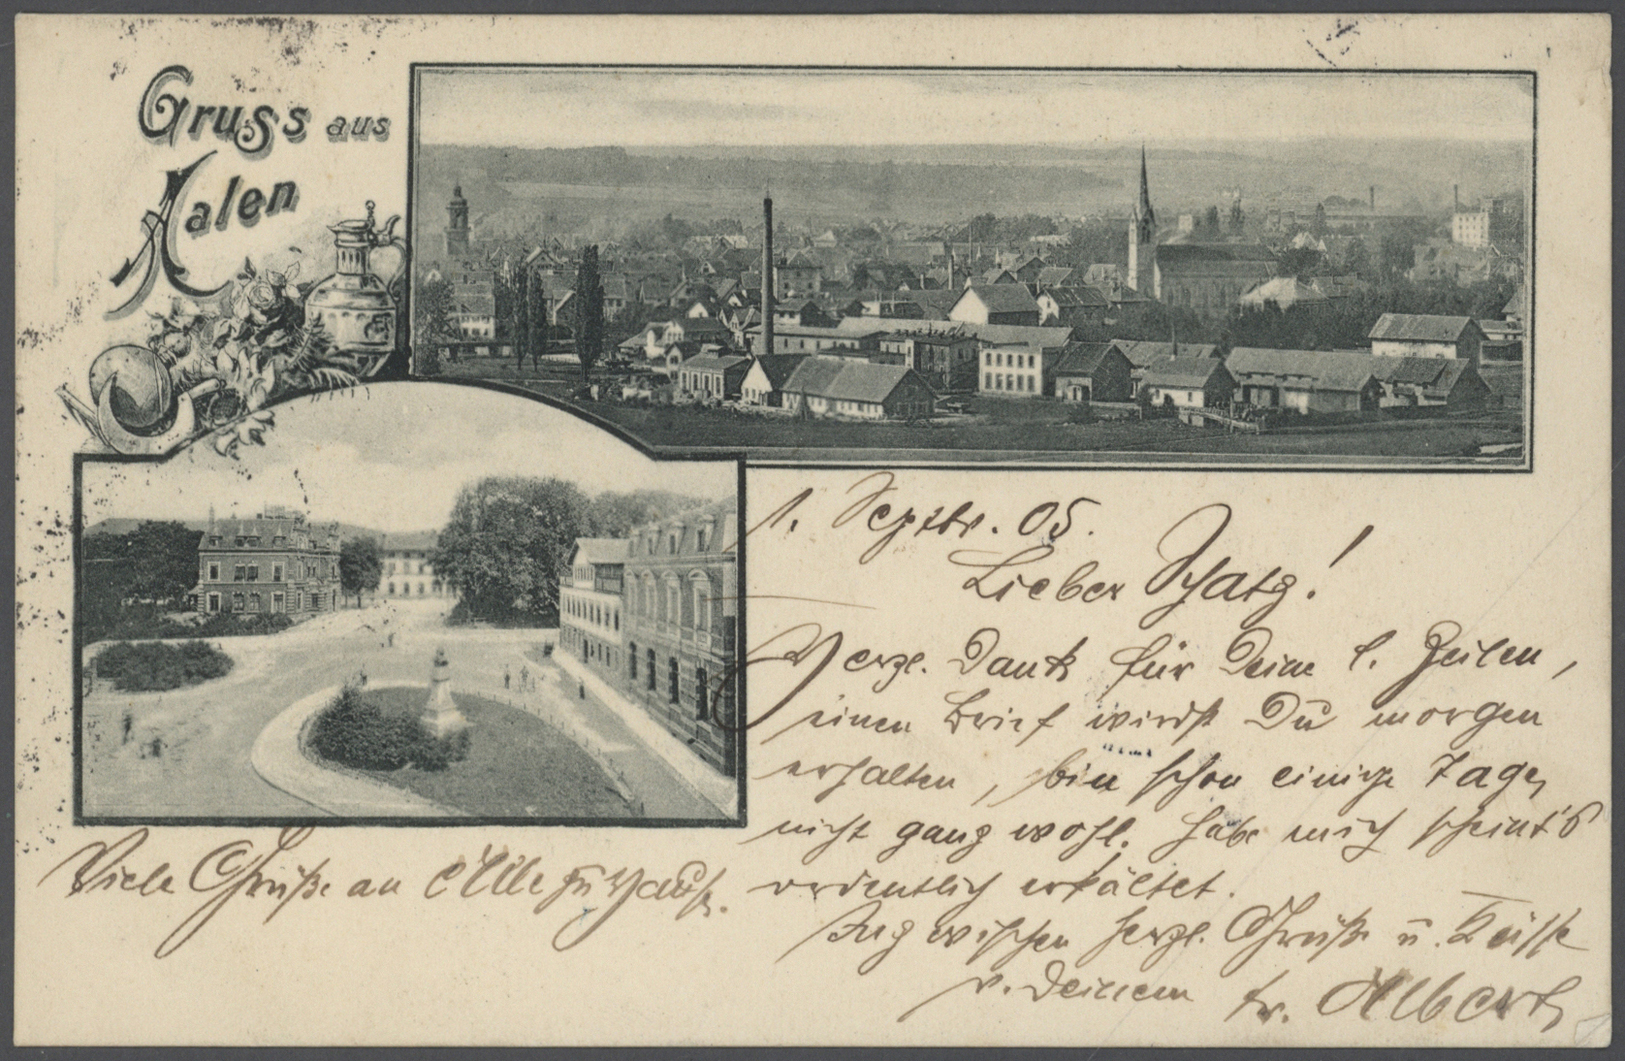 Gruss aus
Aalen
1. Septbr. 05.
Lieber Schatz!
Herzl. Dank für Deine l. Zeilen,
einen Brief wirst Du morgen
erhalten, bin schon einige Tage,
nicht ganz wohl. habe mich scheint's
ordentlich erkältet.
Inzwischen herzl. Grüße u. Küsse
v. Deinem tr. Albert,
Viele Grüße an Alle zu Hause.